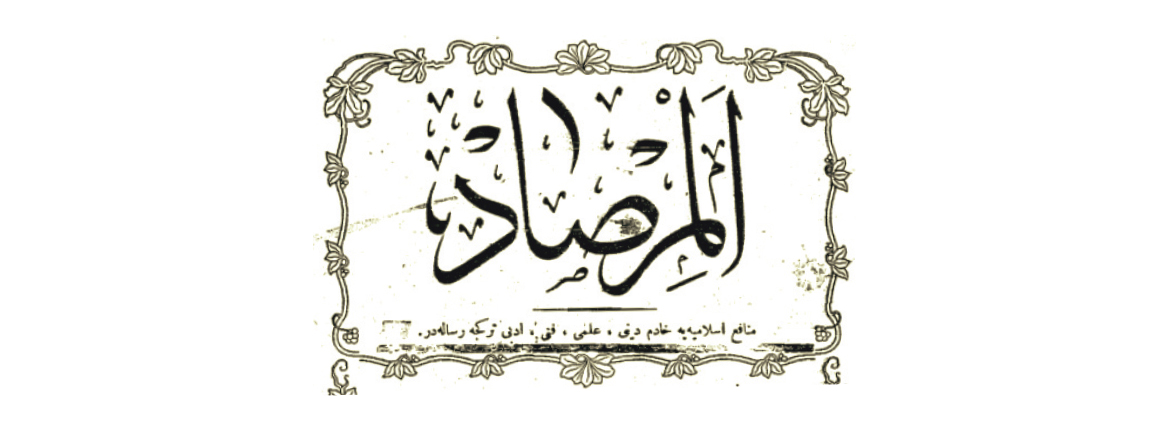 اَلْمِرْصَادْ
منافع اسلاميه‌يه خادم دينى ، علمى ، فنى ، ادبى تركجه رساله‌در.